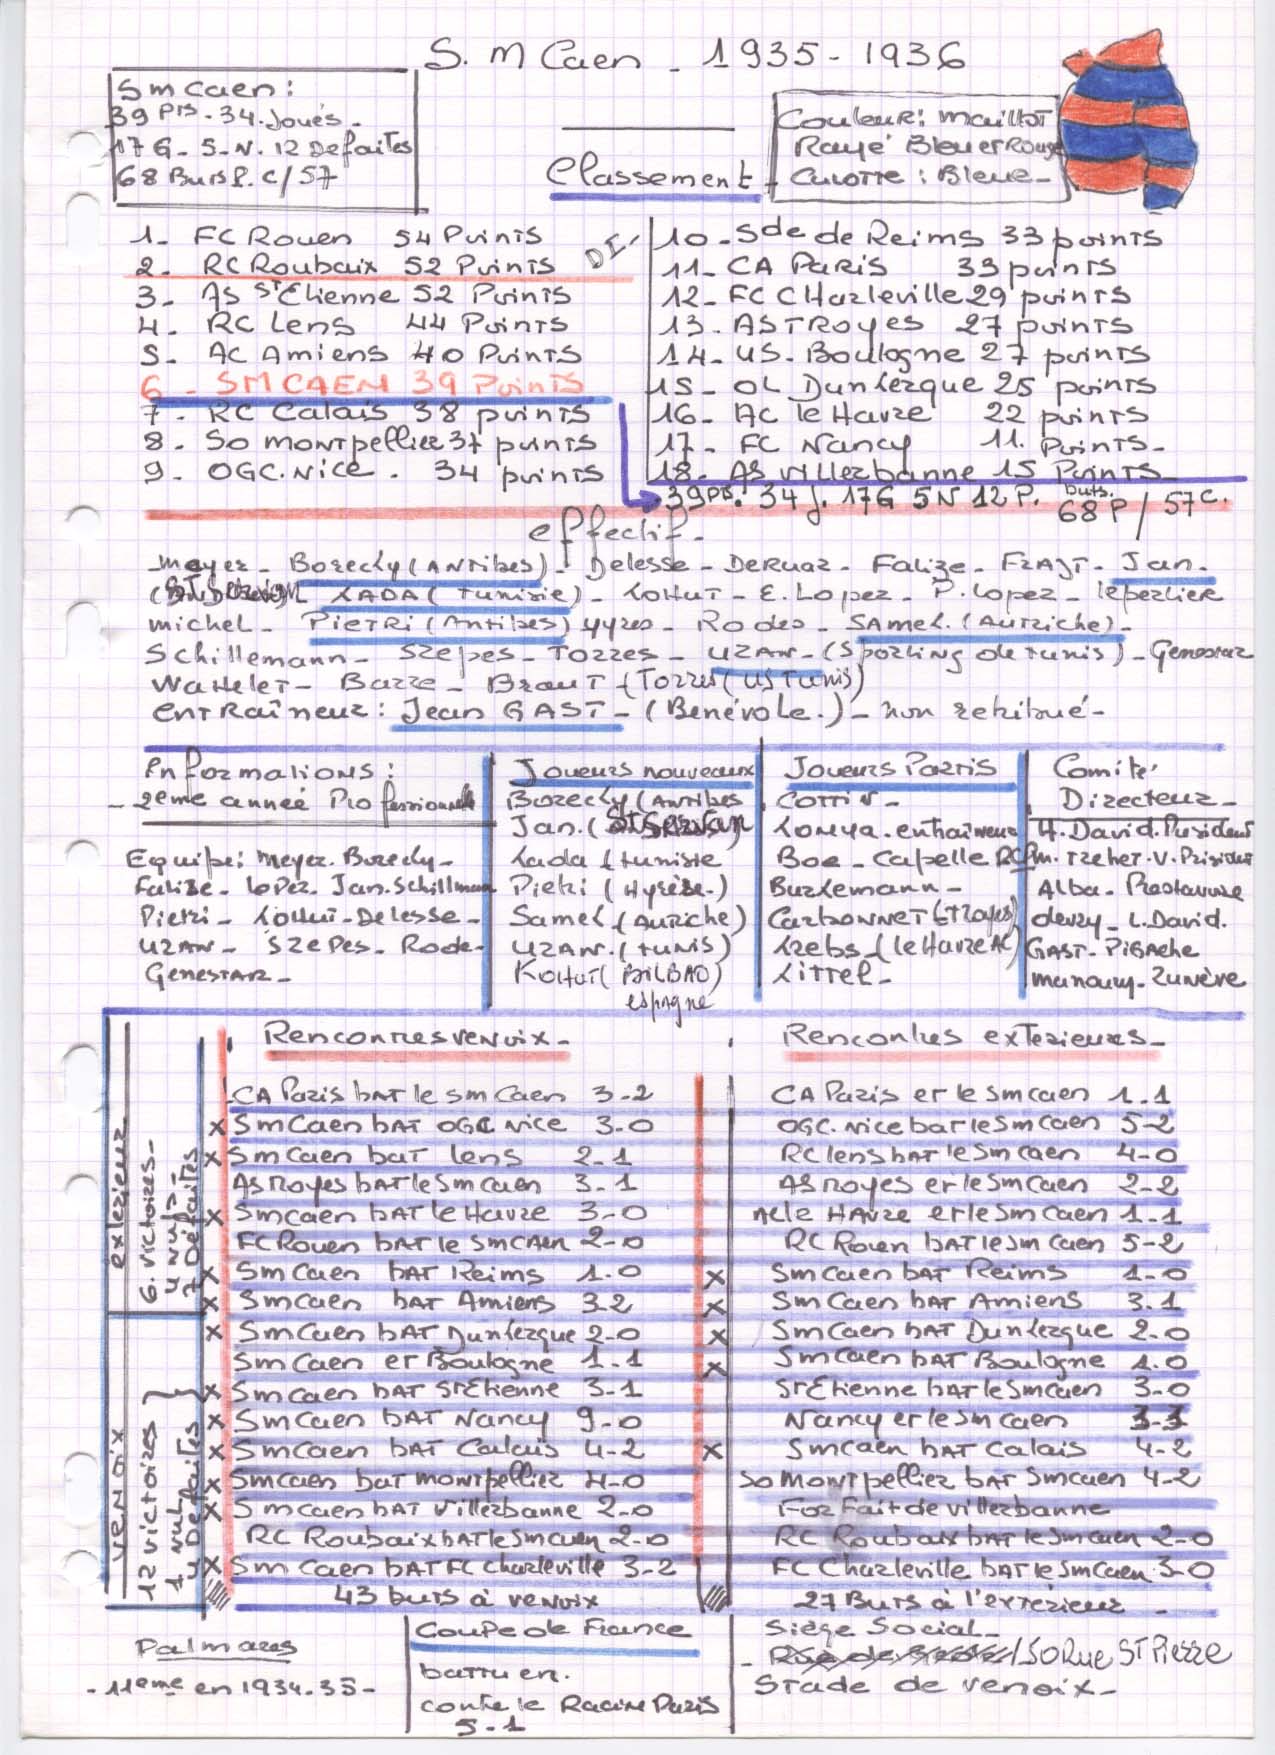 S. M Caen - 1935 - 1936
SM Caen :
39 Pts - 34. Joués -
17 G - 5 - N. 12 Defaites
68 Buts P. C/57
Couleur : Maillot
Rayé Bleu et Rouge
Culotte : Bleue -
Classement
1. FC Rouen 54 Points
2. RC Roubaix 52 Points
3. AS St Etienne 52 Points
4. RC Lens 44 Points
5. AC Amiens 40 Points
6 - SM CAEN 39 Points
7. RC Calais 38 points
8. SO Montpellier 37 points
9. OGC. Nice. 34 points
10. Sde de Reims 33 points
11. CA Paris 33 points
12. FC Charleville 29 points
13. AS Troyes 27 points
14. US. Boulogne 27 points
15. OL Dunkerque 25 points
16. AC le Havre 22 points
17. FC Nancy 11. Points -
18. AS Villerbanne 15 Points
39 pts. 34 J. 17 G 5 N 12 P. buts. 68 P / 57 C.
effectif -
Meyer - Borecky (Antibes) - Delesse - Deruaz - Falize - - Jan.
KADA (Tunisie) - Kohut - E. Lopez - P. Lopez - leperlier
Michel - Pietri (Antibes) - Rodes - Samek. (Autriche) -
Schillemann - Szepes - Torres - Uzan - (Sporting de tunis) - Genestar
Wattelet - Barre - Braut - (Torres (US Tunis)
Entraîneur : Jean GAST - (Benévole.) - non retribué -
Informations :
- 2eme année Professionnelle
Equipe : Meyer. Borecky -
Falize - Lopez. Jan. Schillman
Pietri - Kohut - Delesse -
Uzan - Szepes - Rode -
Genestar -
Joueurs nouveaux
Borecky (Antibes
Jan. (St Servan
Kada (tunisie
Pietri (Hyrèse.)
Samek (Autriche)
Uzan. (tunis)
Kohut (BILBAO)
espagne
Joueurs Partis
Cottin -
Konya - entraîneur
Boe - Capelle RCP
Burkemann -
Carbonnet (Troyes)
Krebs - (le Havre AC)
Kittel -
Comité
Directeur -
H. David. President
M. Treher. V. Président
Alba -
devry - L. David.
GAST - Pigache
Manoury - Zunère
exterieur
6. victoires -
4 nuls
7 Defaites
venoix
12 victoires
1 nul
4 Defaites
Rencontres venoix -
CA Paris bat le SM Caen 3-2
x SM Caen bat OGC Nice 3-0
x SM Caen bat Lens 2-1
AS royes bat le SM Caen 3-1
x SM Caen bat le Havre 3-0
FC Rouen bat le SM CAEN 2-0
x SM Caen bat Reims 1.0
x SM Caen bat Amiens 3.2
x SM Caen bat Dunkerque 2-0
SM Caen et Boulogne 1.1
x SM Caen bat St Etienne 3-1
x SM Caen bat Nancy 9-0
x SM Caen bat Calais 4-2
x SM Caen bat Montpellier 4-0
x SM Caen bat Villerbanne 2-0
RC Roubaix bat le SM Caen 2-0
x SM Caen bat FC Charleville 3-2
43 buts à venoix
Rencontres exterieures -
CA Paris et le SM Caen 1.1
OGC. Nice bat le SM Caen 5-2
RC Lens bat le SM Caen 4-0
AS royes et le SM Caen 2-2
AC le Havre et le SM Caen 1.1
RC Rouen bat le SM Caen 5-2
x SM Caen bat Reims 1-0
x SM Caen bat Amiens 3.1
x SM Caen bat Dunkerque 2-0
x SM Caen bat Boulogne 1.0
St Etienne bat le SM Caen 3-0
Nancy et le SM Caen 3-3
x SM Caen bat Calais 4-2
SO Montpellier bat SM Caen 4-2
Forfait de Villerbanne
RC Roubaix bat le SM Caen 2-0
FC Charleville bat le SM Caen 3-0
27 Buts à l'exterieur -
Palmares
- 11eme en 1934-35 -
Coupe de France
battu en.
contre le Racing Paris
5-1
Siège Social -
150 Rue ST Pierre
Stade de venoix -